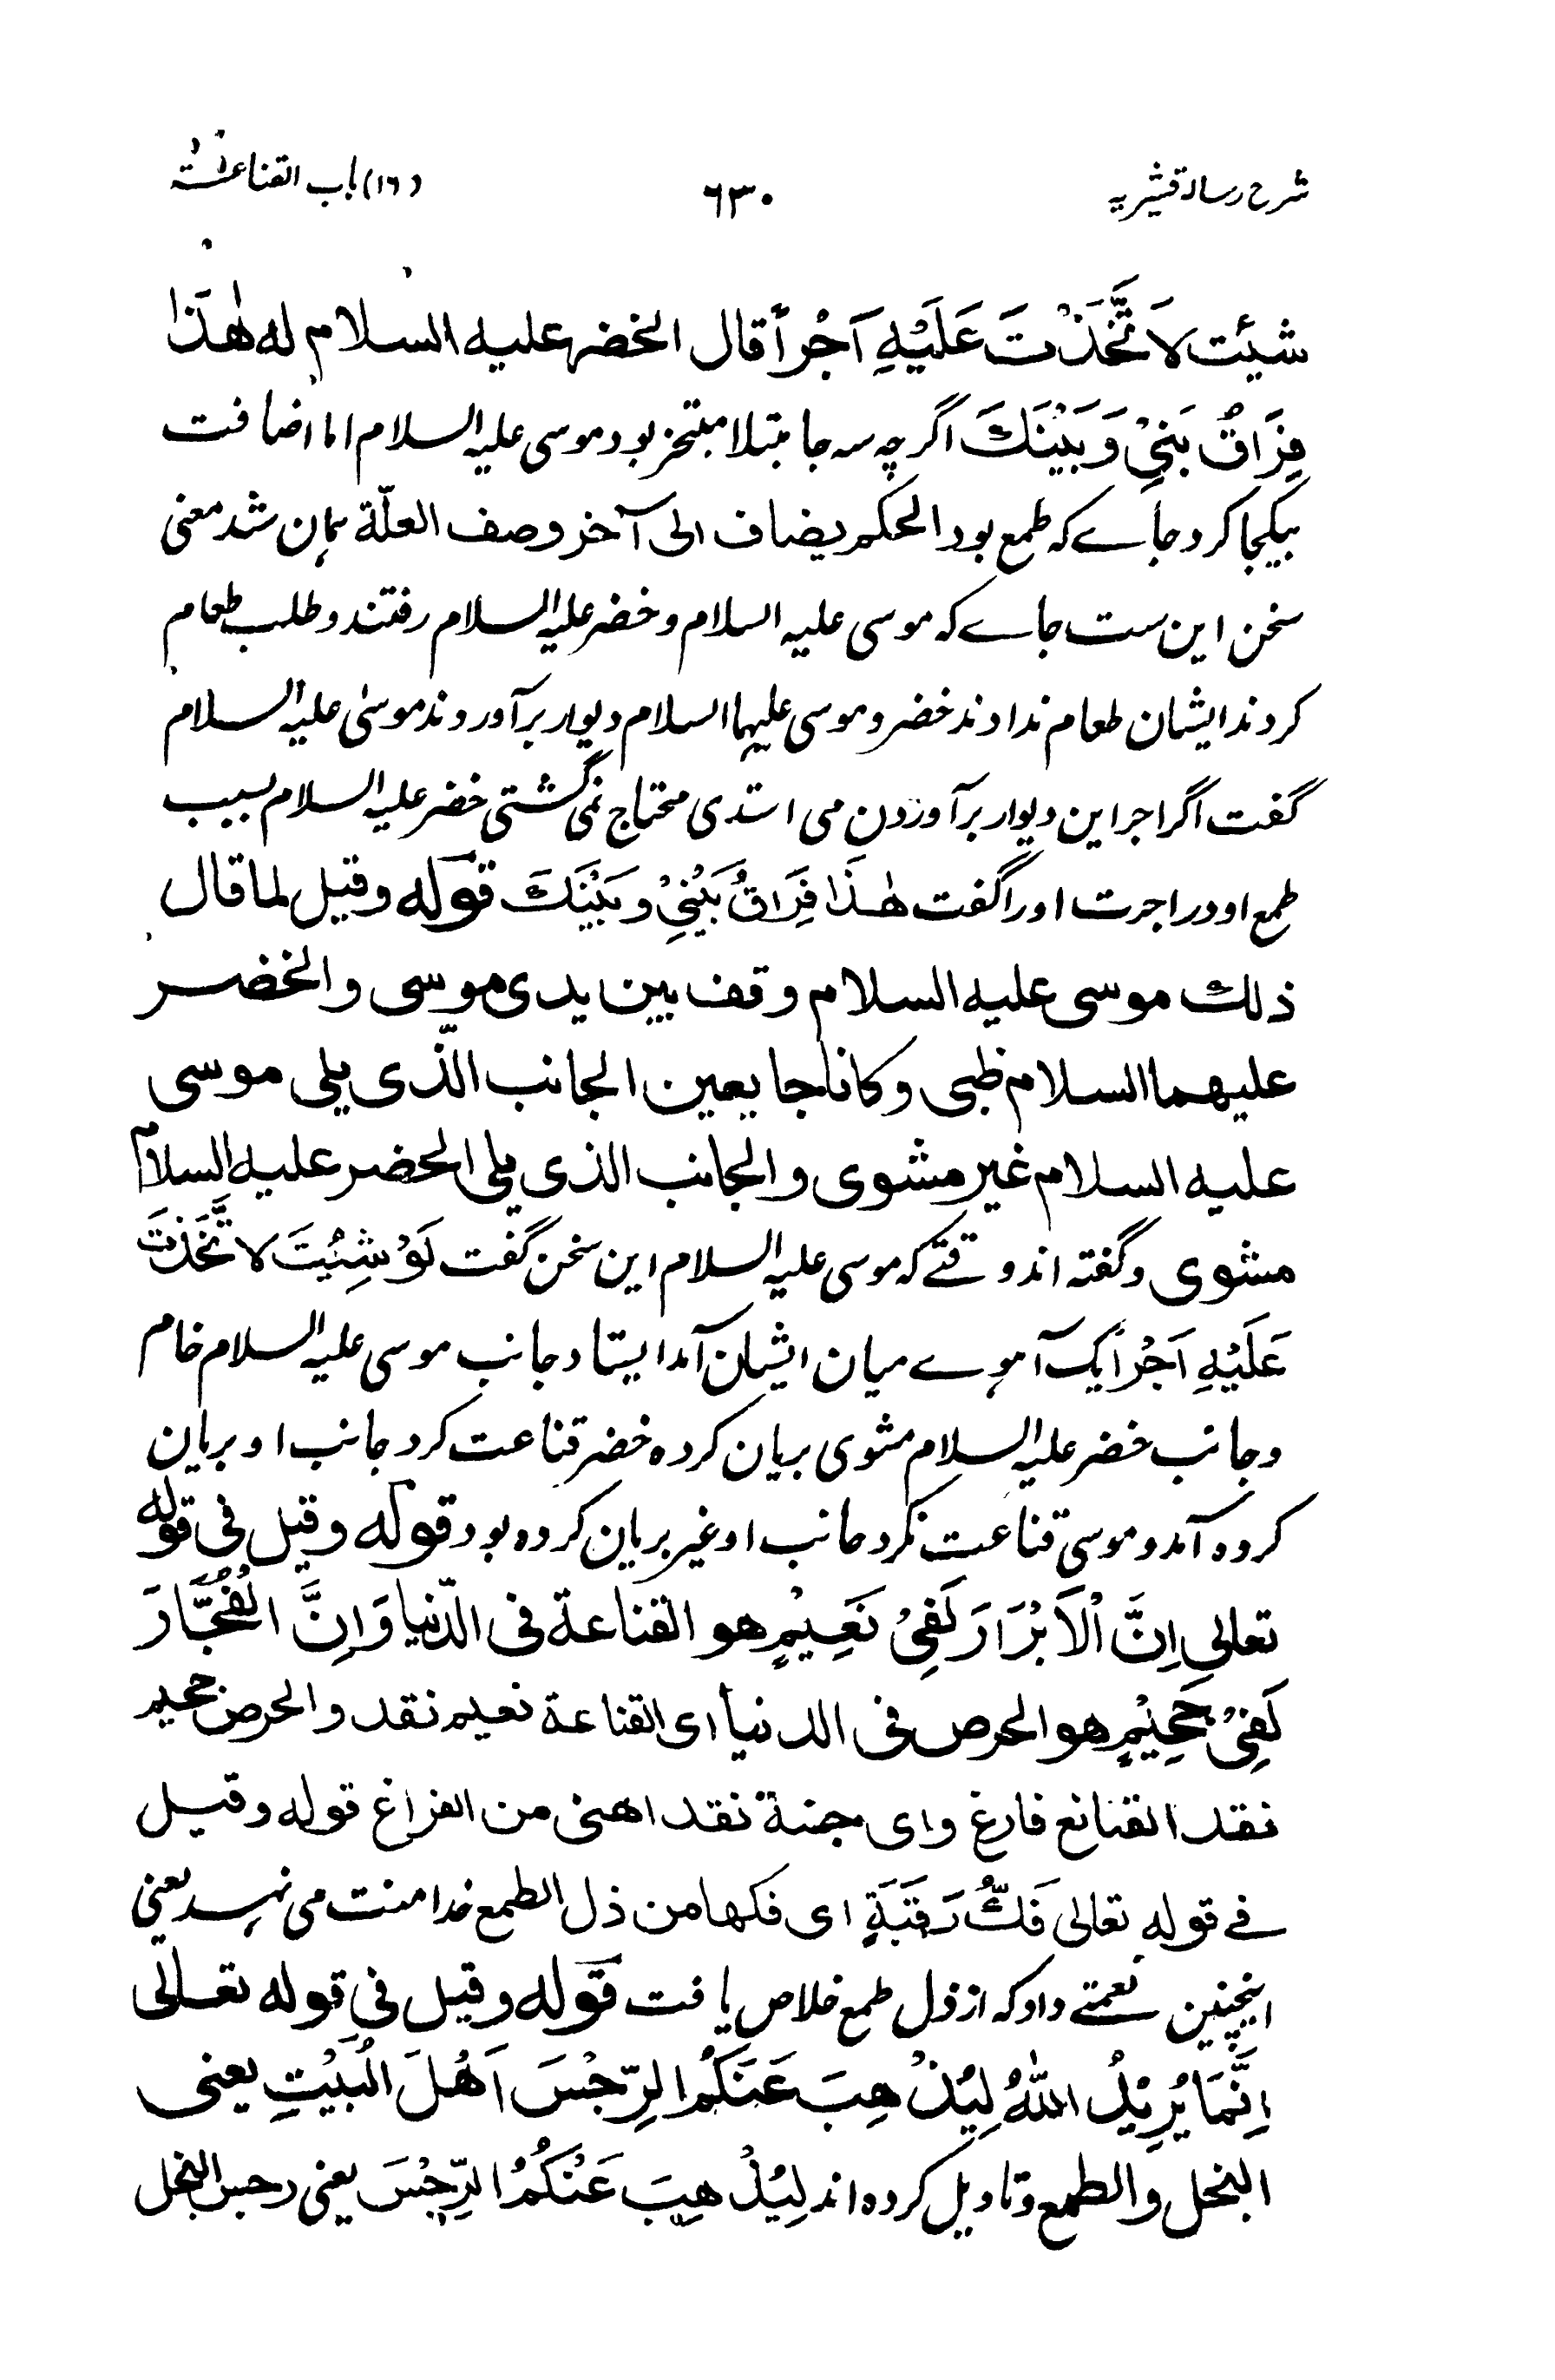 شرح رسالة قشيريه ٦٣٠ (١٦) باب القناعة
شيئت لَا تَّخَذْتَ عَلَيْهِ اَجْراً قال الخضر عليه السلام له هٰذَا
فِرَاقُ بَيْنِيْ وَبَيْنَكَ اگرچہ سہ جا مبتلا بود موسی علیہ السلام اما اضافت
بیکجا کرد جاے کہ طمع بود الحكم يضاف الى آخر وصف العلّة بمان شد معنی
سخن این ست جاے کہ موسی علیہ السلام و خضر علیہ السلام رفتند و طلب طعام
کردند ایشان طعام ندادند خضر و موسی علیہما السلام دیوار برآوردند موسیٰ علیہ السلام
گفت اگر اجر این دیوار برآوردن می استدی محتاج نمی گشتی خضر علیہ السلام بسبب
طمع او در اجرت اورا گفت هٰذَا فِرَاقُ بَيْنِيْ وَبَيْنَكَ قوله وقيل لما قال
ذلك موسى عليه السلام وقف بين يدى موسى والخضر
عليهما السلام ظبى وكانا جايعين الجانب الّذى يلى موسى
عليه السلام غير مشوى والجانب الذى يلى الحضر عليه السلام
مشوى وگفته اند وقتے کہ موسی علیہ السلام این سخن گفت لَوْ شِئْتَ لَا تَّخَذْتَ
عَلَيْهِ اَجْراً یک آہوے میان ایشان آمد ایستاد جانب موسی علیہ السلام خام
و جانب خضر علیہ السلام مشوی بریان کردہ خضر قناعت کرد جانب او بریان
کردہ آمد و موسی قناعت نکرد جانب او غیر بریان کردہ بود قوله وقيل فى قوله
تعالى اِنَّ الْاَبْرَارَ لَفِيْ نَعِيْمٍ هو القناعة فى الدّنيا وَاِنَّ الْفُجَّارَ
لَفِيْ جَحِيْمٍ هو الحرص فى الدنيا اى القناعة نعيم نقد والحرص جحيم
نقد القنانع فارغ واى جنة نقد اهنى من الفراغ قوله وقيل
فے قوله تعالى فَكُّ رَقَبَةٍ اى فكها من ذل الطمع خدا منت می نہد یعنی
اینچنین نعمتے داد کہ از ذل طمع خلاص یافت قوله وقيل فى قوله تعالى
اِنَّمَا يُرِيْدُ اللّٰهُ لِيُذْهِبَ عَنْكُمُ الرِّجْسَ اَهْلَ الْبَيْتِ يعنى
البخل والطمع وتاویل کردہ اند لِيُذْهِبَ عَنْكُمُ الرِّجْسَ یعنی رجس البخل